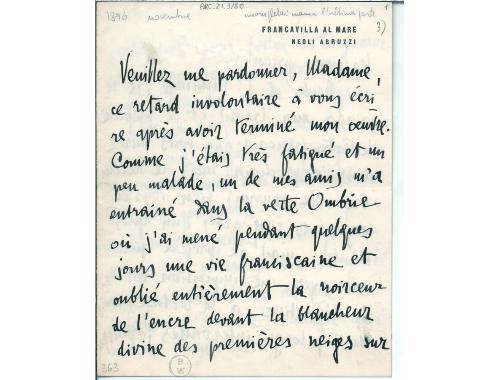 1896 novembre ARC.21.3/80
3)
FRANCAVILLA AL MARE
NEGLI ABRUZZI
Veuillez me pardonner, Madame,
ce retard involontaire à vous écri
re après avoir terminé mon œuvre.
Comme j'étais très fatigué et un
peu malade, un de mes amis m'a
entrainé dans la verte Ombrie
où j'ai mené pendant quelques
jours une vie franciscaine et
oublié entièrement la noirceur
de l'encre devant la blancheur
divine des premières neiges sur
363